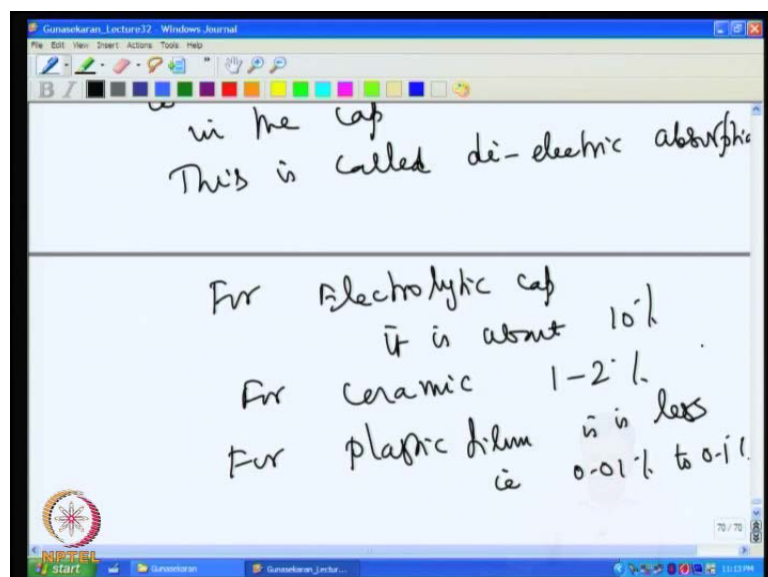 Gunasekaran_Lecture32 - Windows Journal
File Edit View Insert Actions Tools Help
B I
in the cap
This is called di-electric absorptio
For Electrolytic cap
it is about 10%
For ceramic 1-2%.
For plastic film it is less
ie 0.01% to 0.1%
70 / 70
NPTEL
start Gunasekaran Gunasekaran_Lectur... 11:13 PM